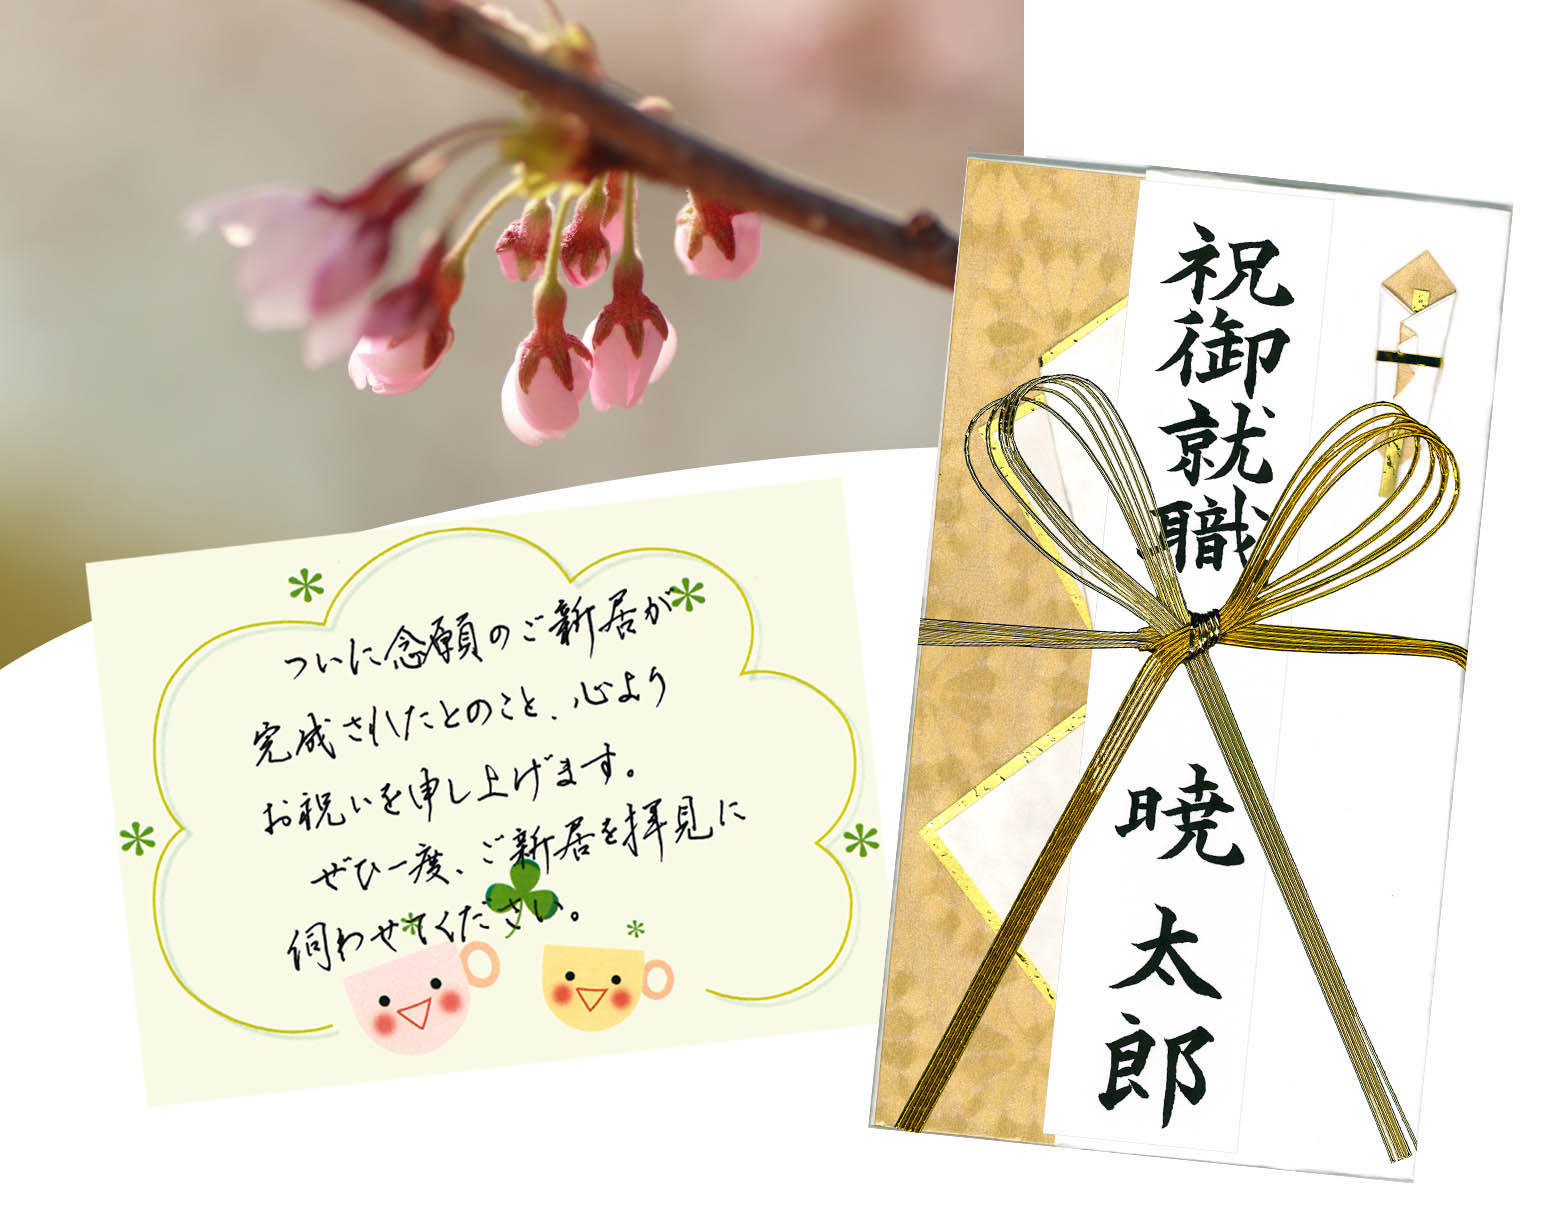 ついに念願のご新居が
完成されたとのこと、心より
お祝いを申し上げます。
ぜひ一度、ご新居を拝見に
伺わせてください。
祝御就職
暁太郎